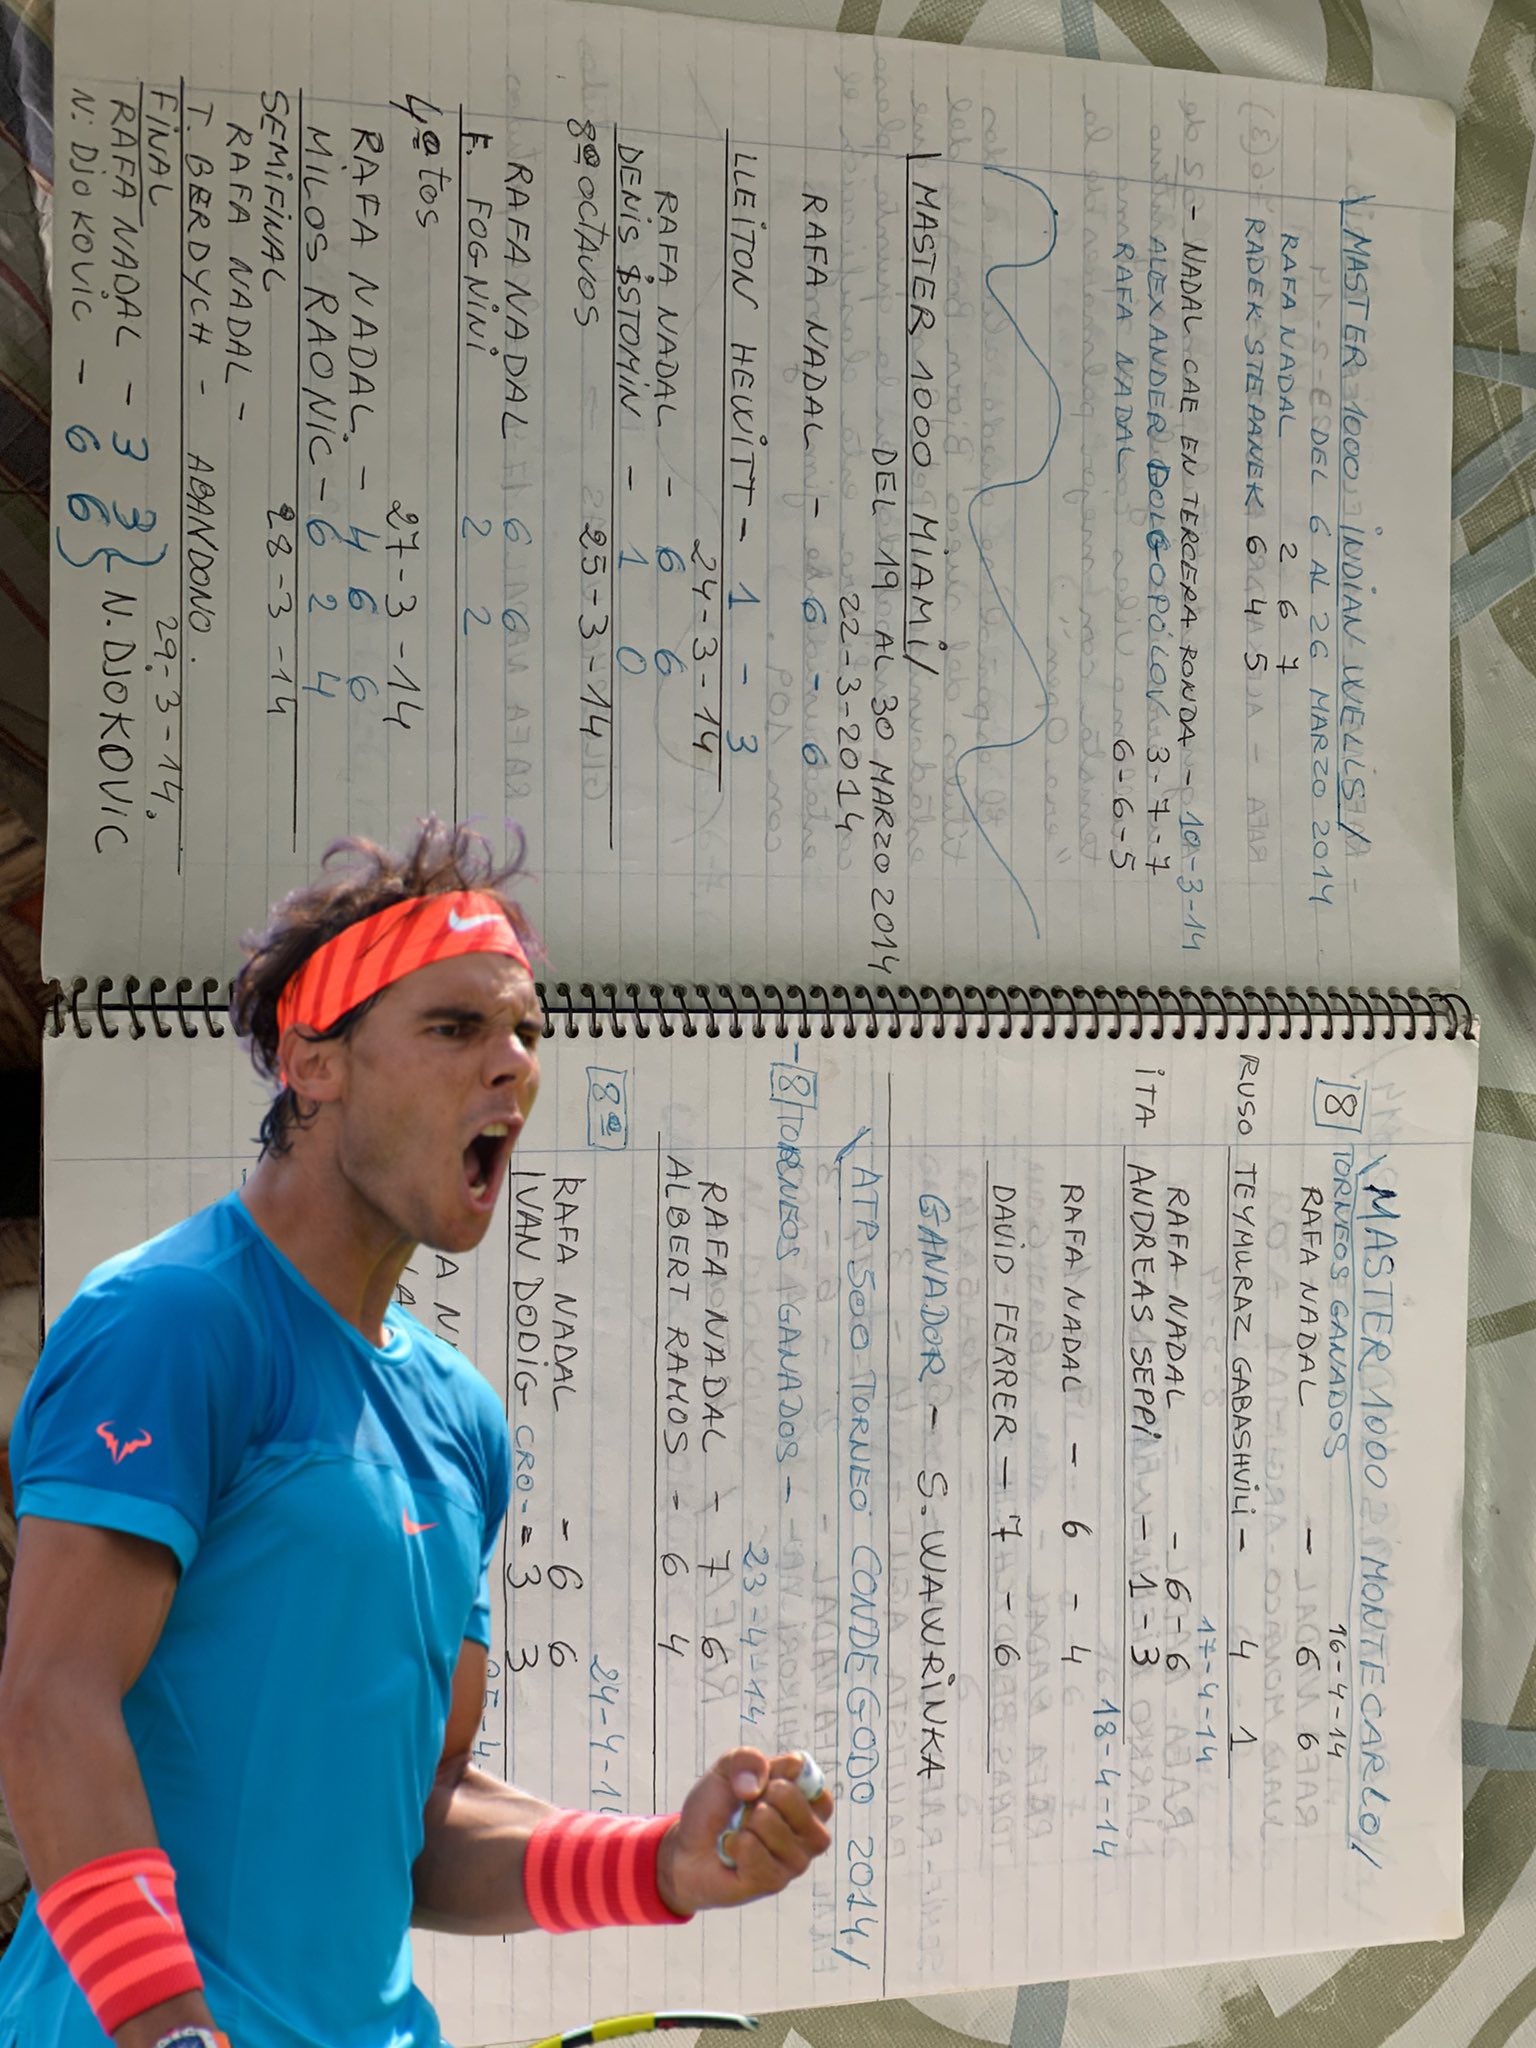 MASTER 1000 INDIAN WELLS/
DEL 6 AL 26 MARZO 2014
RAFA NADAL 2 6 7
RADEK STEPANEK 6 4 5
- NADAL CAE EN TERCERA RONDA - 10-3-14
ALEXANDER DOLGOPÓLOV 3-7-7
RAFA NADAL 6-6-5
MASTER 1000 MIAMI/
DEL 19 AL 30 MARZO 2014
22-3-2014
RAFA NADAL - 6 - 6
LLEITON HEWITT - 1 - 3
24-3-14
RAFA NADAL - 6 6
DENIS ISTOMIN - 1 0
8ºº octavos 25-3-14
RAFA NADAL 6 6
F. FOGNINI 2 2
4ºtos 27-3-14
RAFA NADAL. - 4 6 6
MILOS RAONIC - 6 2 4
SEMIFINAL 28-3-14
RAFA NADAL -
T. BERDYCH - ABANDONO.
FINAL 29-3-14.
RAFA NADAL - 3 3
N. DJOKOVIC - 6 6 } N. DJOKOVIC
MASTER 1000 MONTECARLO/
8 TORNEOS GANADOS 16-4-14
RAFA NADAL - 6 6
RUSO TEYMURAZ GABASHVILI - 4 1
17-4-14
RAFA NADAL - 6-6
ITA ANDREAS SEPPI - 1-3
18-4-14
RAFA NADAL - 6 - 4
DAVID FERRER - 7 - 6
GANADOR - S. WAWRINKA
ATP 500 TORNEO CONDE GODO 2014/
- 8 TORNEOS GANADOS -
23-4-14
RAFA NADAL - 7 6
ALBERT RAMOS - 6 4
8º 24-4-14
RAFA NADAL - 6 6
IVAN DODIG CRO - 3 3